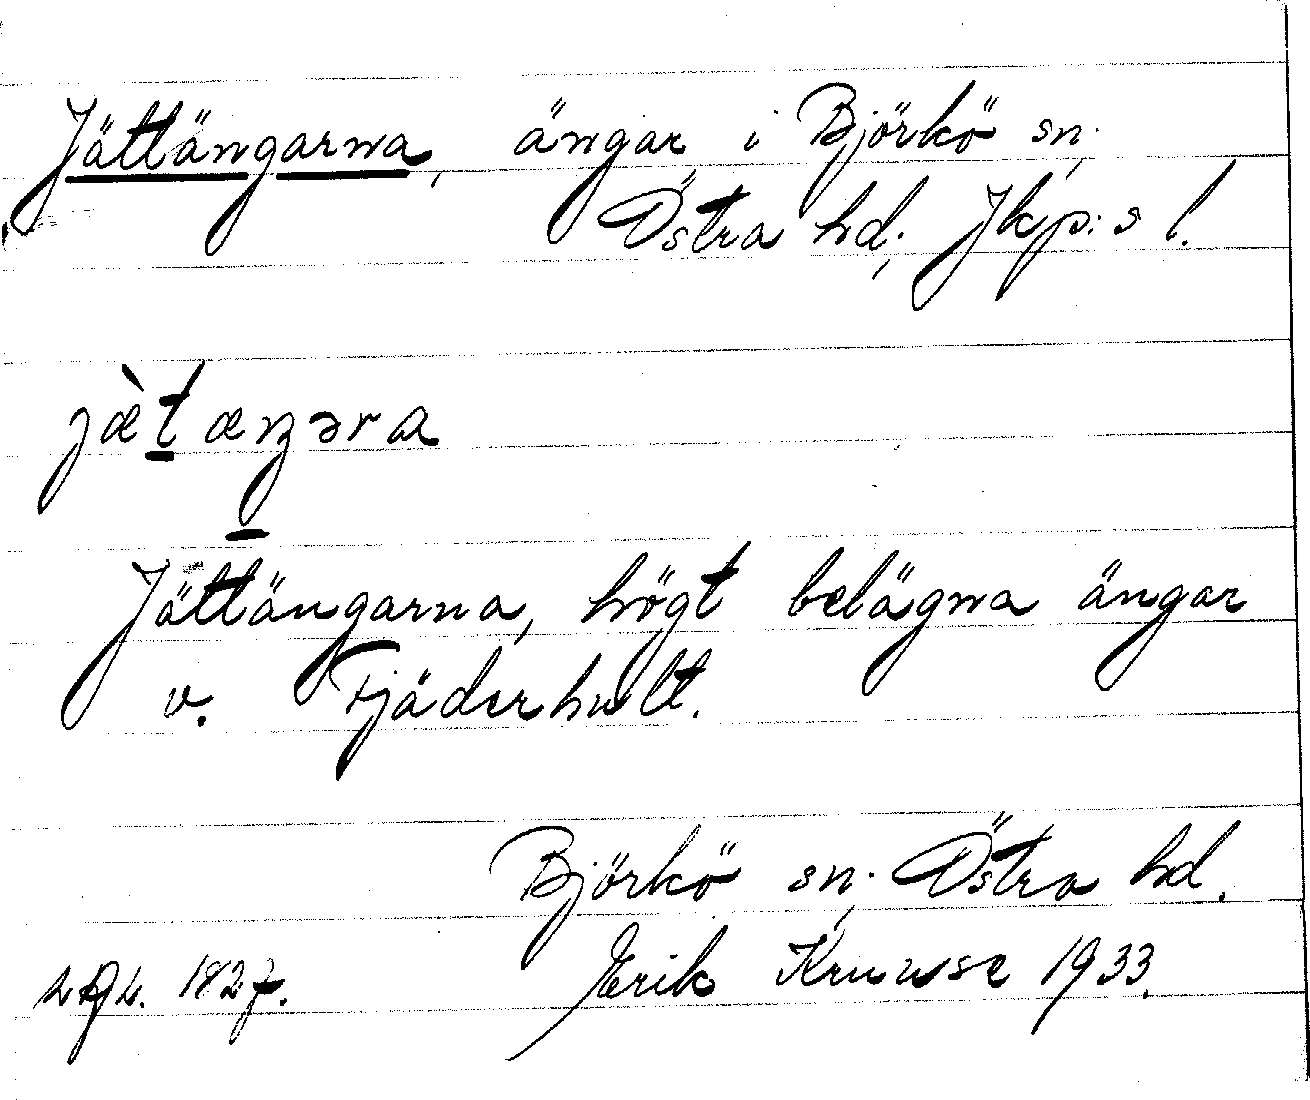 Jättängarna, ängar i Björkö sn,
Östra hd, Jkp:s l.
jæ̀t̠æŋ̠əra
Jättängarna, högt belägna ängar
v. Fjäderhult.
Björkö sn, Östra hd.
1827. Erik Kruuse 1933.